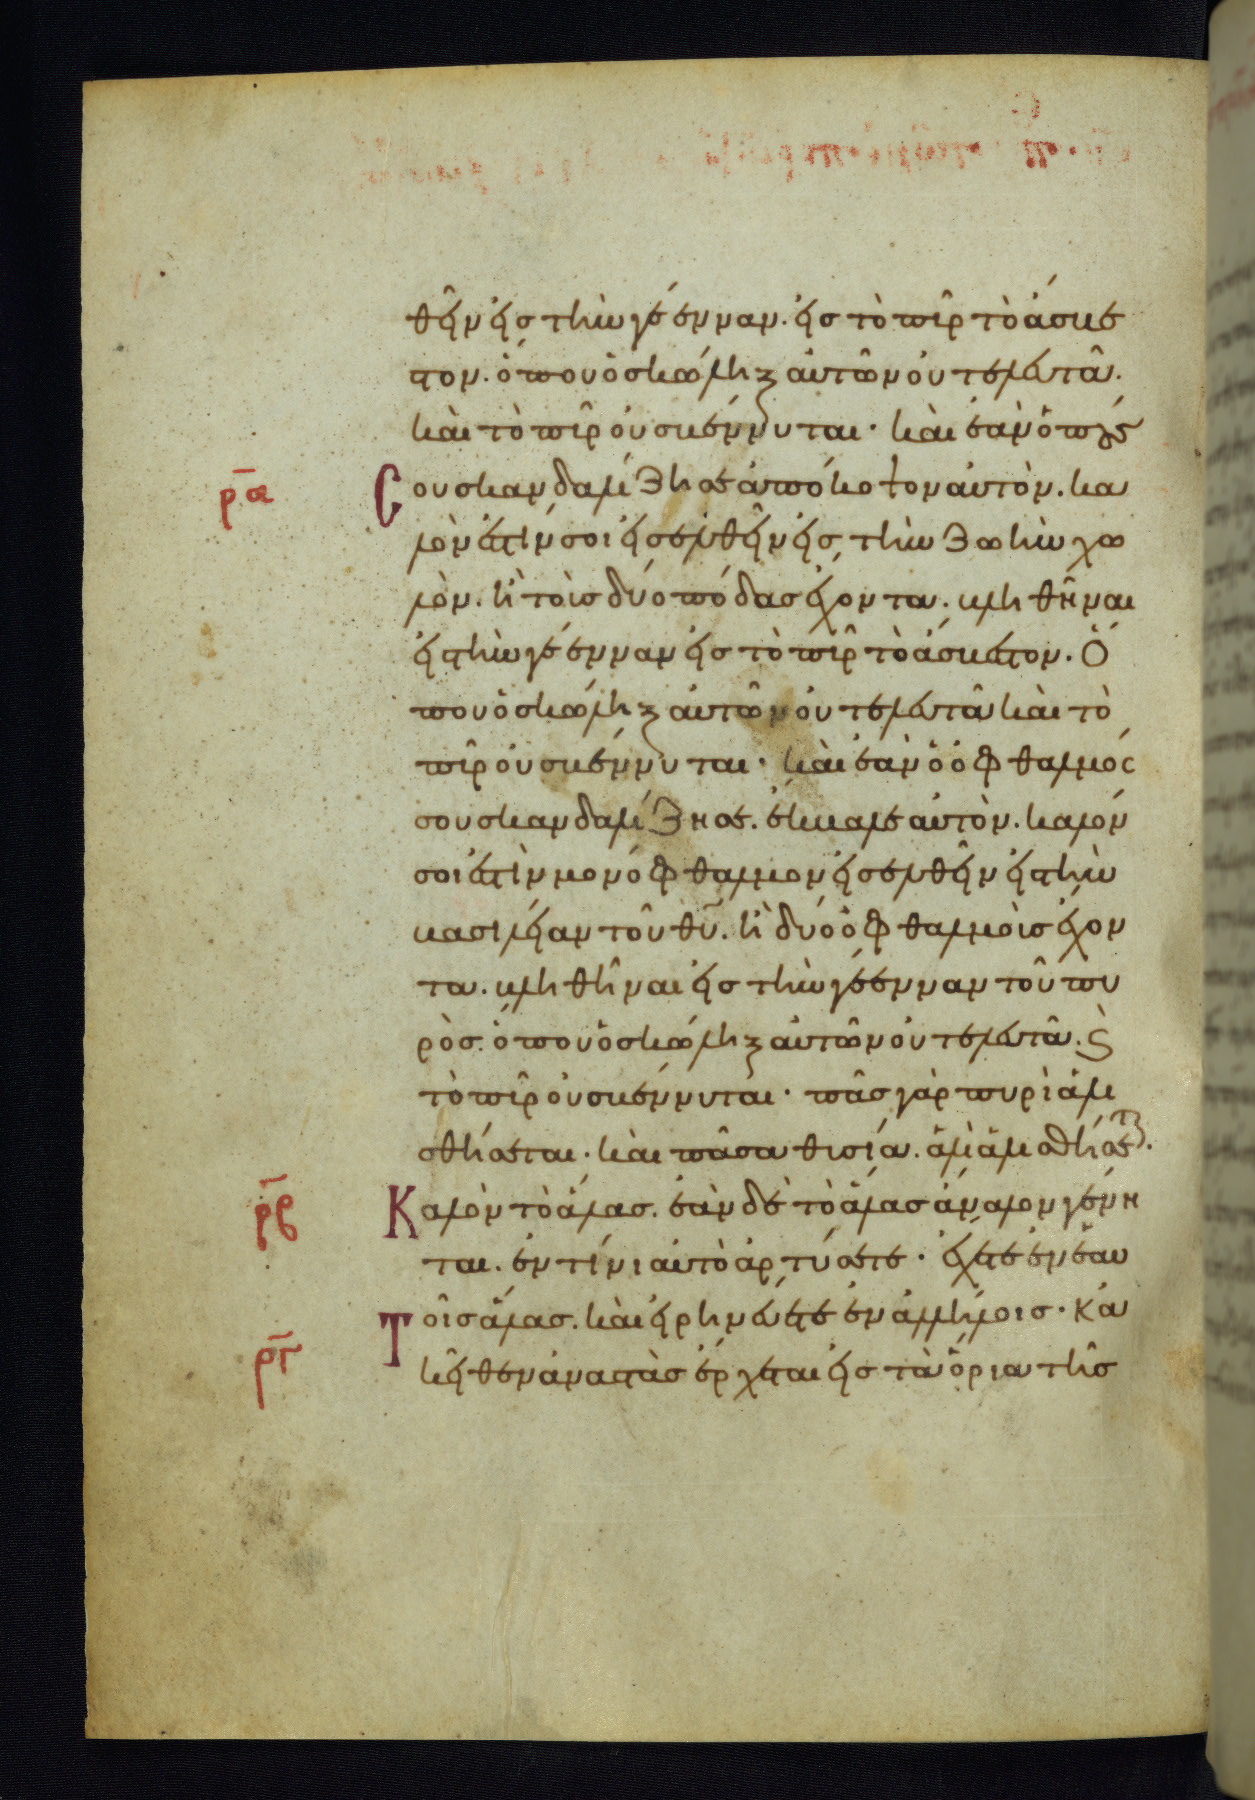 θεῖν εἰς τὴν γέενναν. εἰς τὸ πῦρ τὸ ἄσβε
στον. ὅπου ὁ σκώληξ αὐτῶν οὐ τελευτᾶ.
καὶ τὸ πῦρ οὐ σβέννυται· καὶ ἐὰν ὁ πούς
ρ̄α
σου σκανδαλίζη σε ἀπόκοψον αὐτὸν. κα
λὸν ἐστίν σοι εἰσελθεῖν εἰς τὴν ζωὴν χω
λὸν. ἢ τοὺς δύο πόδας ἔχοντα. βληθῆναι
εἰς τὴν γέενναν εἰς τὸ πῦρ τὸ ἄσβεστον. Ὅ
που ὁ σκώληξ αὐτῶν οὐ τελευτᾶ καὶ τὸ
πῦρ οὐ σβέννυται· καὶ ἐὰν ὁ ὀφθαλμός
σου σκανδαλίζη σε. ἔκβαλε αὐτὸν. καλόν
σοι ἐστὶν μονόφθαλμον εἰσελθεῖν εἰς τὴν
βασιλείαν τοῦ θ̄υ. ἢ δύο ὀφθαλμοὺς ἔχον
τα. βληθῆναι εἰς τὴν γέενναν τοῦ πυ
ρὸς. ὅπου ὁ σκώληξ αὐτῶν οὐ τελευτᾶ. ϗ
τὸ πῦρ οὐ σβέννυται· πᾶς γὰρ πυρὶ ἁλι
σθήσεται. καὶ πᾶσα θυσία. ἁλὶ ἁλισθήσετ.
ρ̄β
Καλὸν τὸ ἅλας. ἐὰν δὲ τὸ ἅλας ἄναλον γένη
ται. ἐν τίνι αὐτὸ ἀρτύσετε· ἔχετε ἐν ἑαυ
τοῖς ἅλας. καὶ εἰρηνεύετε ἐν ἀλλήλοις· Κά
ρ̄γ
κεῖθεν ἀναστὰς ἔρχεται εἰς τὰ ὅρια τῆς